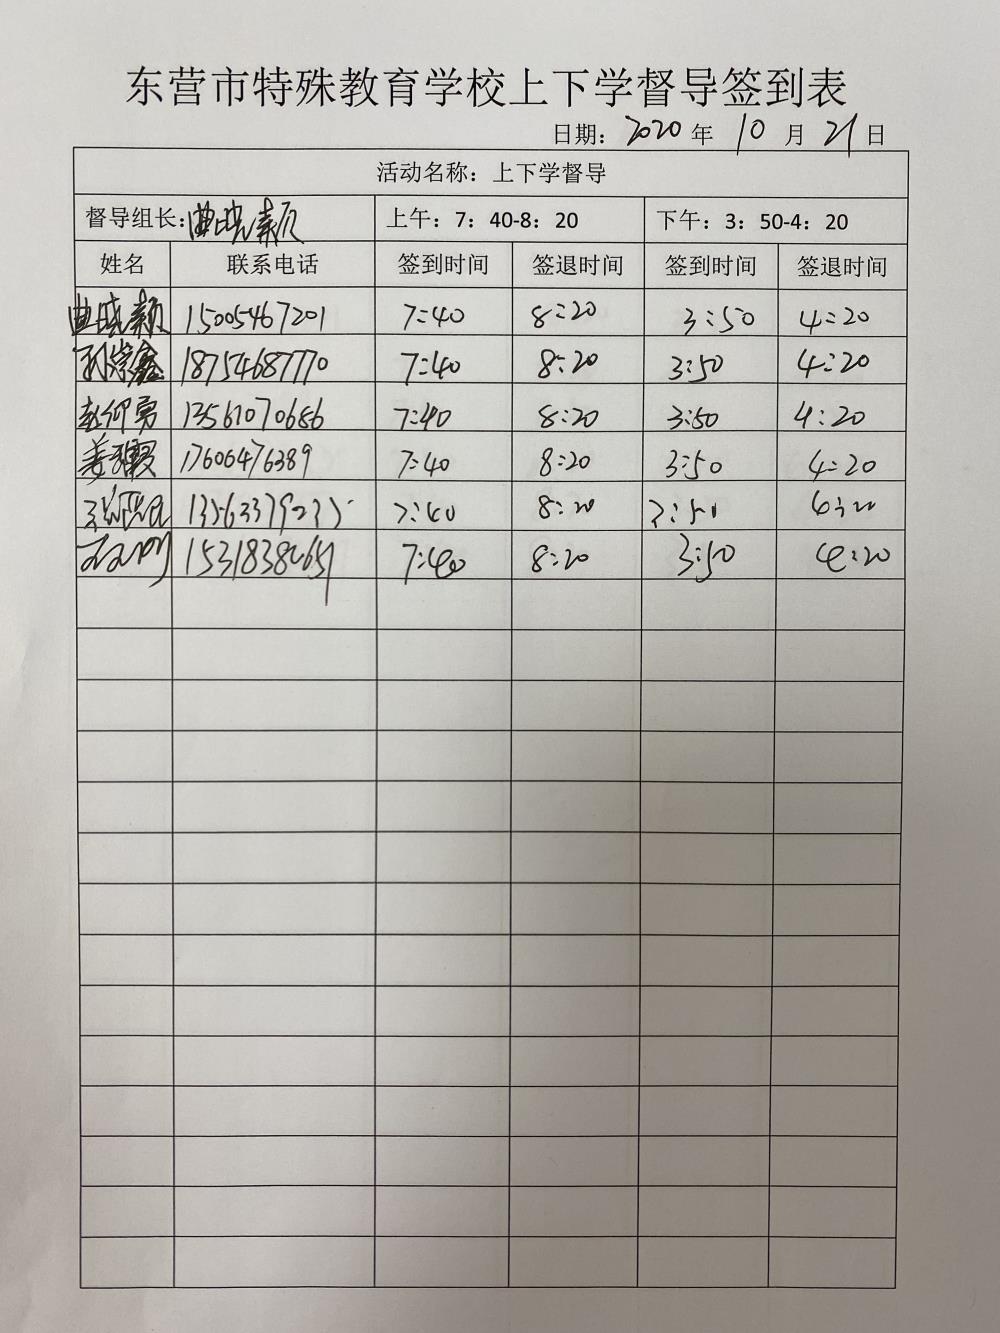 东营市特殊教育学校上下学督导签到表
日期：2020 年 10 月 21 日
活动名称：上下学督导
督导组长：曲晓颖 上午：7：40-8：20 下午：3：50-4：20
姓名 联系电话 签到时间 签退时间 签到时间 签退时间
曲晓颖 15005467201 7:40 8:20 3:50 4:20
18754687770 7:40 8:20 3:50 4:20
赵仰勇 13561070686 7:40 8:20 3:50 4:20
17606476389 7:40 8:20 3:50 4:20
7:40 8:20 3:50
7:40 8:20 3:50 4:20